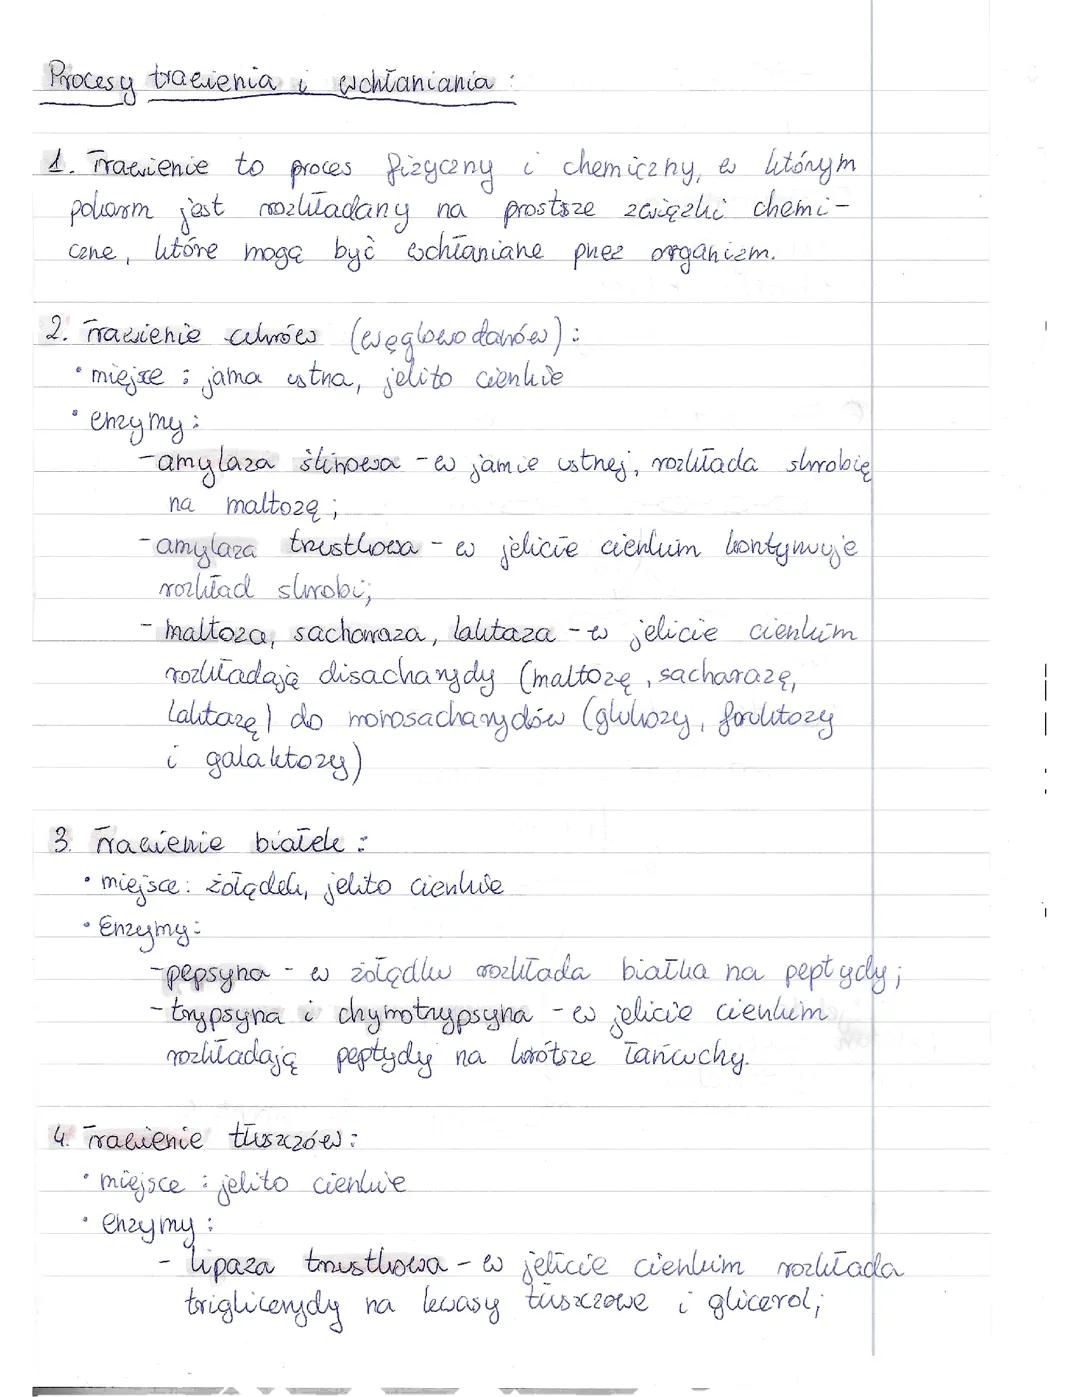 Procesy trawienia i wchłaniania :
1. Trawienie to proces fizyczny i chemiczny, w którym
pokarm jest rozkładany na prostsze związki chemi-
czne, które mogą być wchłaniane przez organizm.
2. Trawienie cukrów (węglowodanów) :
• miejsce : jama ustna, jelito cienkie
• enzymy :
- amylaza ślinowa - w jamie ustnej, rozkłada skrobię
na maltozę ;
- amylaza trzustkowa - w jelicie cienkim kontynuuje
rozkład skrobi;
- maltoza, sacharaza, laktaza - w jelicie cienkim
rozkładają disacharydy (maltozę, sacharazę,
laktazę) do monosacharydów (glukozy, fruktozy
i galaktozy)
3. Trawienie białek :
• miejsce: żołądek, jelito cienkie
• Enzymy:
- pepsyna - w żołądku rozkłada białka na peptydy;
- trypsyna i chymotrypsyna - w jelicie cienkim
rozkładają peptydy na krótsze łańcuchy.
4. Trawienie tłuszczów :
• miejsce : jelito cienkie
• enzymy :
- lipaza trzustkowa - w jelicie cienkim rozkłada
triglicerydy na kwasy tłuszczowe i glicerol;